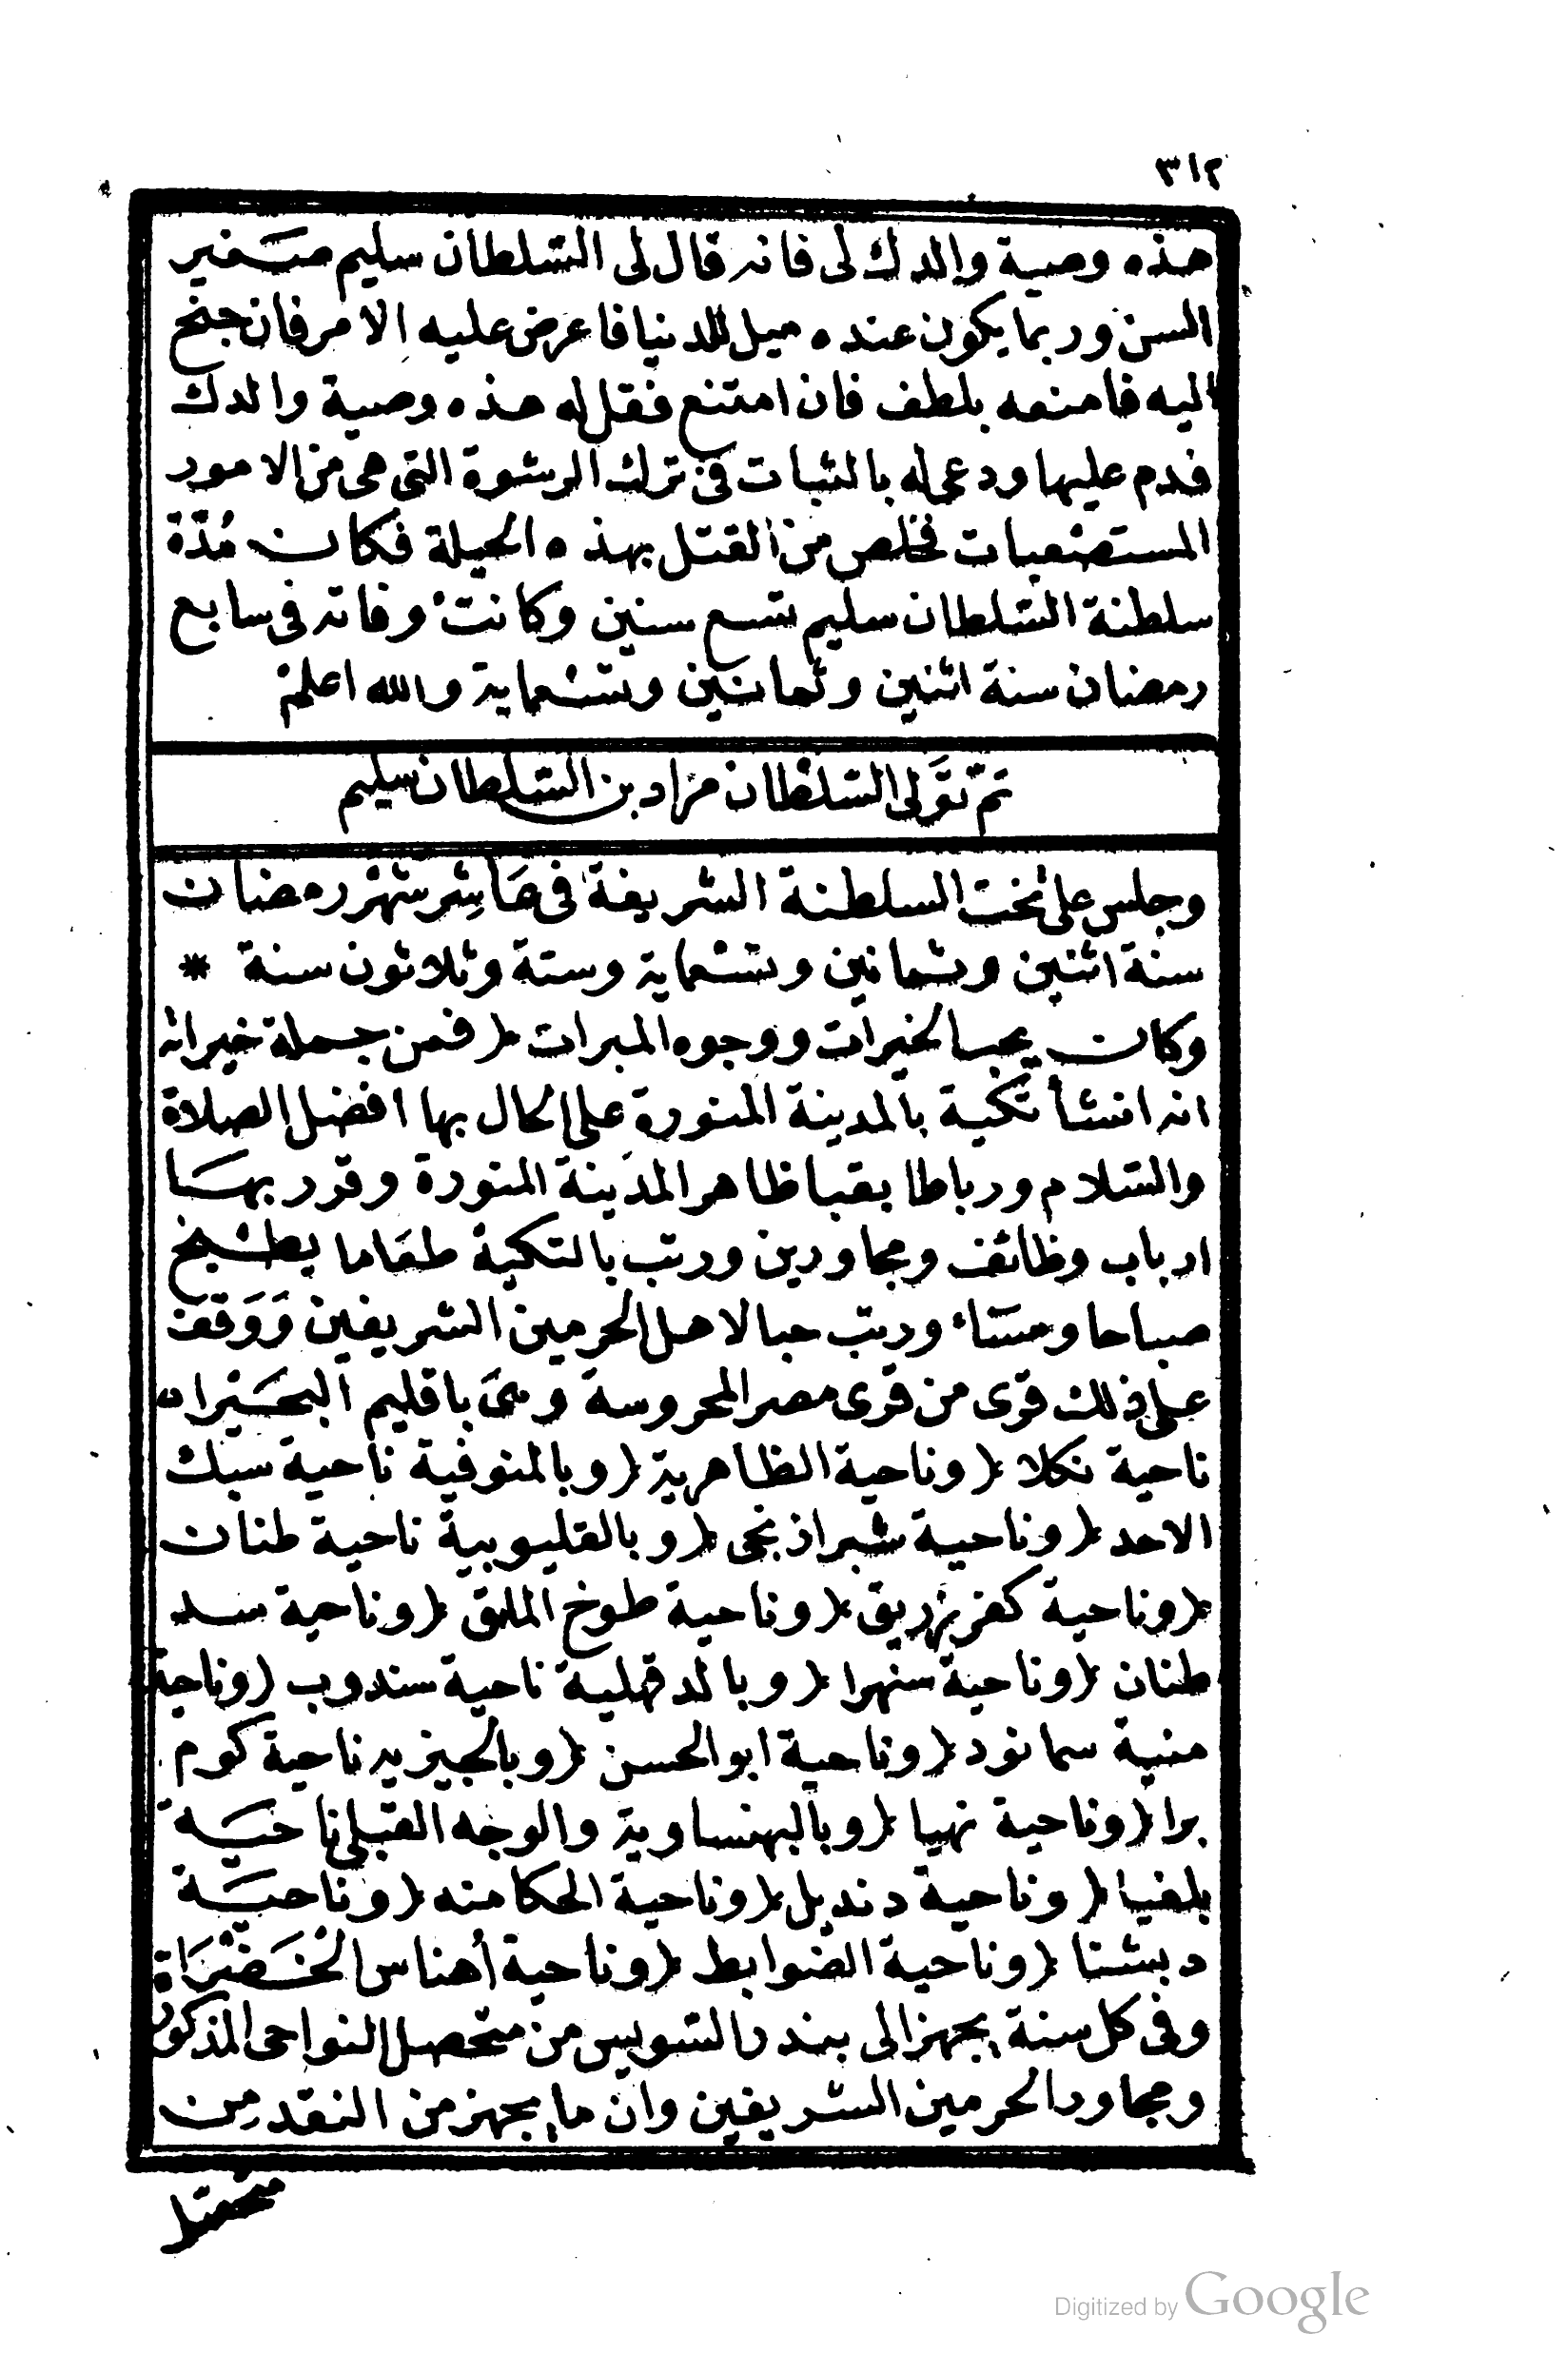 ٣١٢
هذه وصية والدك لى فانه قال لى السلطان سليم صغير
السن وربما يكون عنده ميل للدنيا فاعرض عليه الامر فان جنح
اليه فامنعه بلطف فان امتنع فقل له هذه وصية والدك
فدم عليها ودعى له بالثبات فى ترك الرشوة التى هى من الامور
المستصعبات فخلص من القتل بهذه الحيلة فكان مُدّة
سلطنة السلطان سليم تسع سنين وكانت وفاته فى سابع
رمضان سنة اثنين وثمانين وتسعماية والله اعلم
ثم تَوَلى السلطان مراد بن السلطان سليم
وجلس على تخت السلطنة الشريفة فى عَاشِر شهر رمضان
سنة اثنين وثمانين وتسعماية وستة وثلاثون سنة *
وكان يحب الخيرات ووجوه المبرات ﴿ فمن جملة خيراته
انه انشأ تكية بالمدينة المنورة على الحال بها افضل الصلاة
والسلام ورباطا بقبا ظاهر المدينة المنورة وقرر بهَا
ارباب وظائف ومجاورين ورتب بالتكية طعَاما يطبخ
صباحا ومسَاء ورتب حبا لاهل الحرمين الشريفين وَوَقف
على ذلك قرى من قرى مصر المحروسة وهىَ باقليم البحَيرات
ناحية نكلا ﴿ وناحية الظاهرية ﴿ وبالمنوفية ناحية سبك
الاحد ﴿ وناحية شبرا زنجى ﴿ وبالقليوبية ناحية طنان
﴿ وناحية كفر زريق ﴿ وناحية طوخ الملق ﴿ وناحية سد
طنان ﴿ وناحية سنهرا ﴿ وبالدقهلية ناحية سندوب ﴿ وناحية
منية سمانود ﴿ وناحية ابو الحسن ﴿ وبالجيزيه ناحية كوم
برا ﴿ وناحية نهيا ﴿ وبالبهنساوية والوجه القبلى ناحيَة
بلفيا ﴿ وناحية دنديل ﴿ وناحية الحكامنه ﴿ وناحيَة
دبشنا ﴿ وناحية الضوابط ﴿ وناحية أهناس الخَضْرَاة
وفى كل سنة يجهز الى بندر السويس من متحصل النواحى المذكور
ومجاور الحرمين الشريفين وان ما يجهز من النقد مِن
متحصل
Digitized by Google